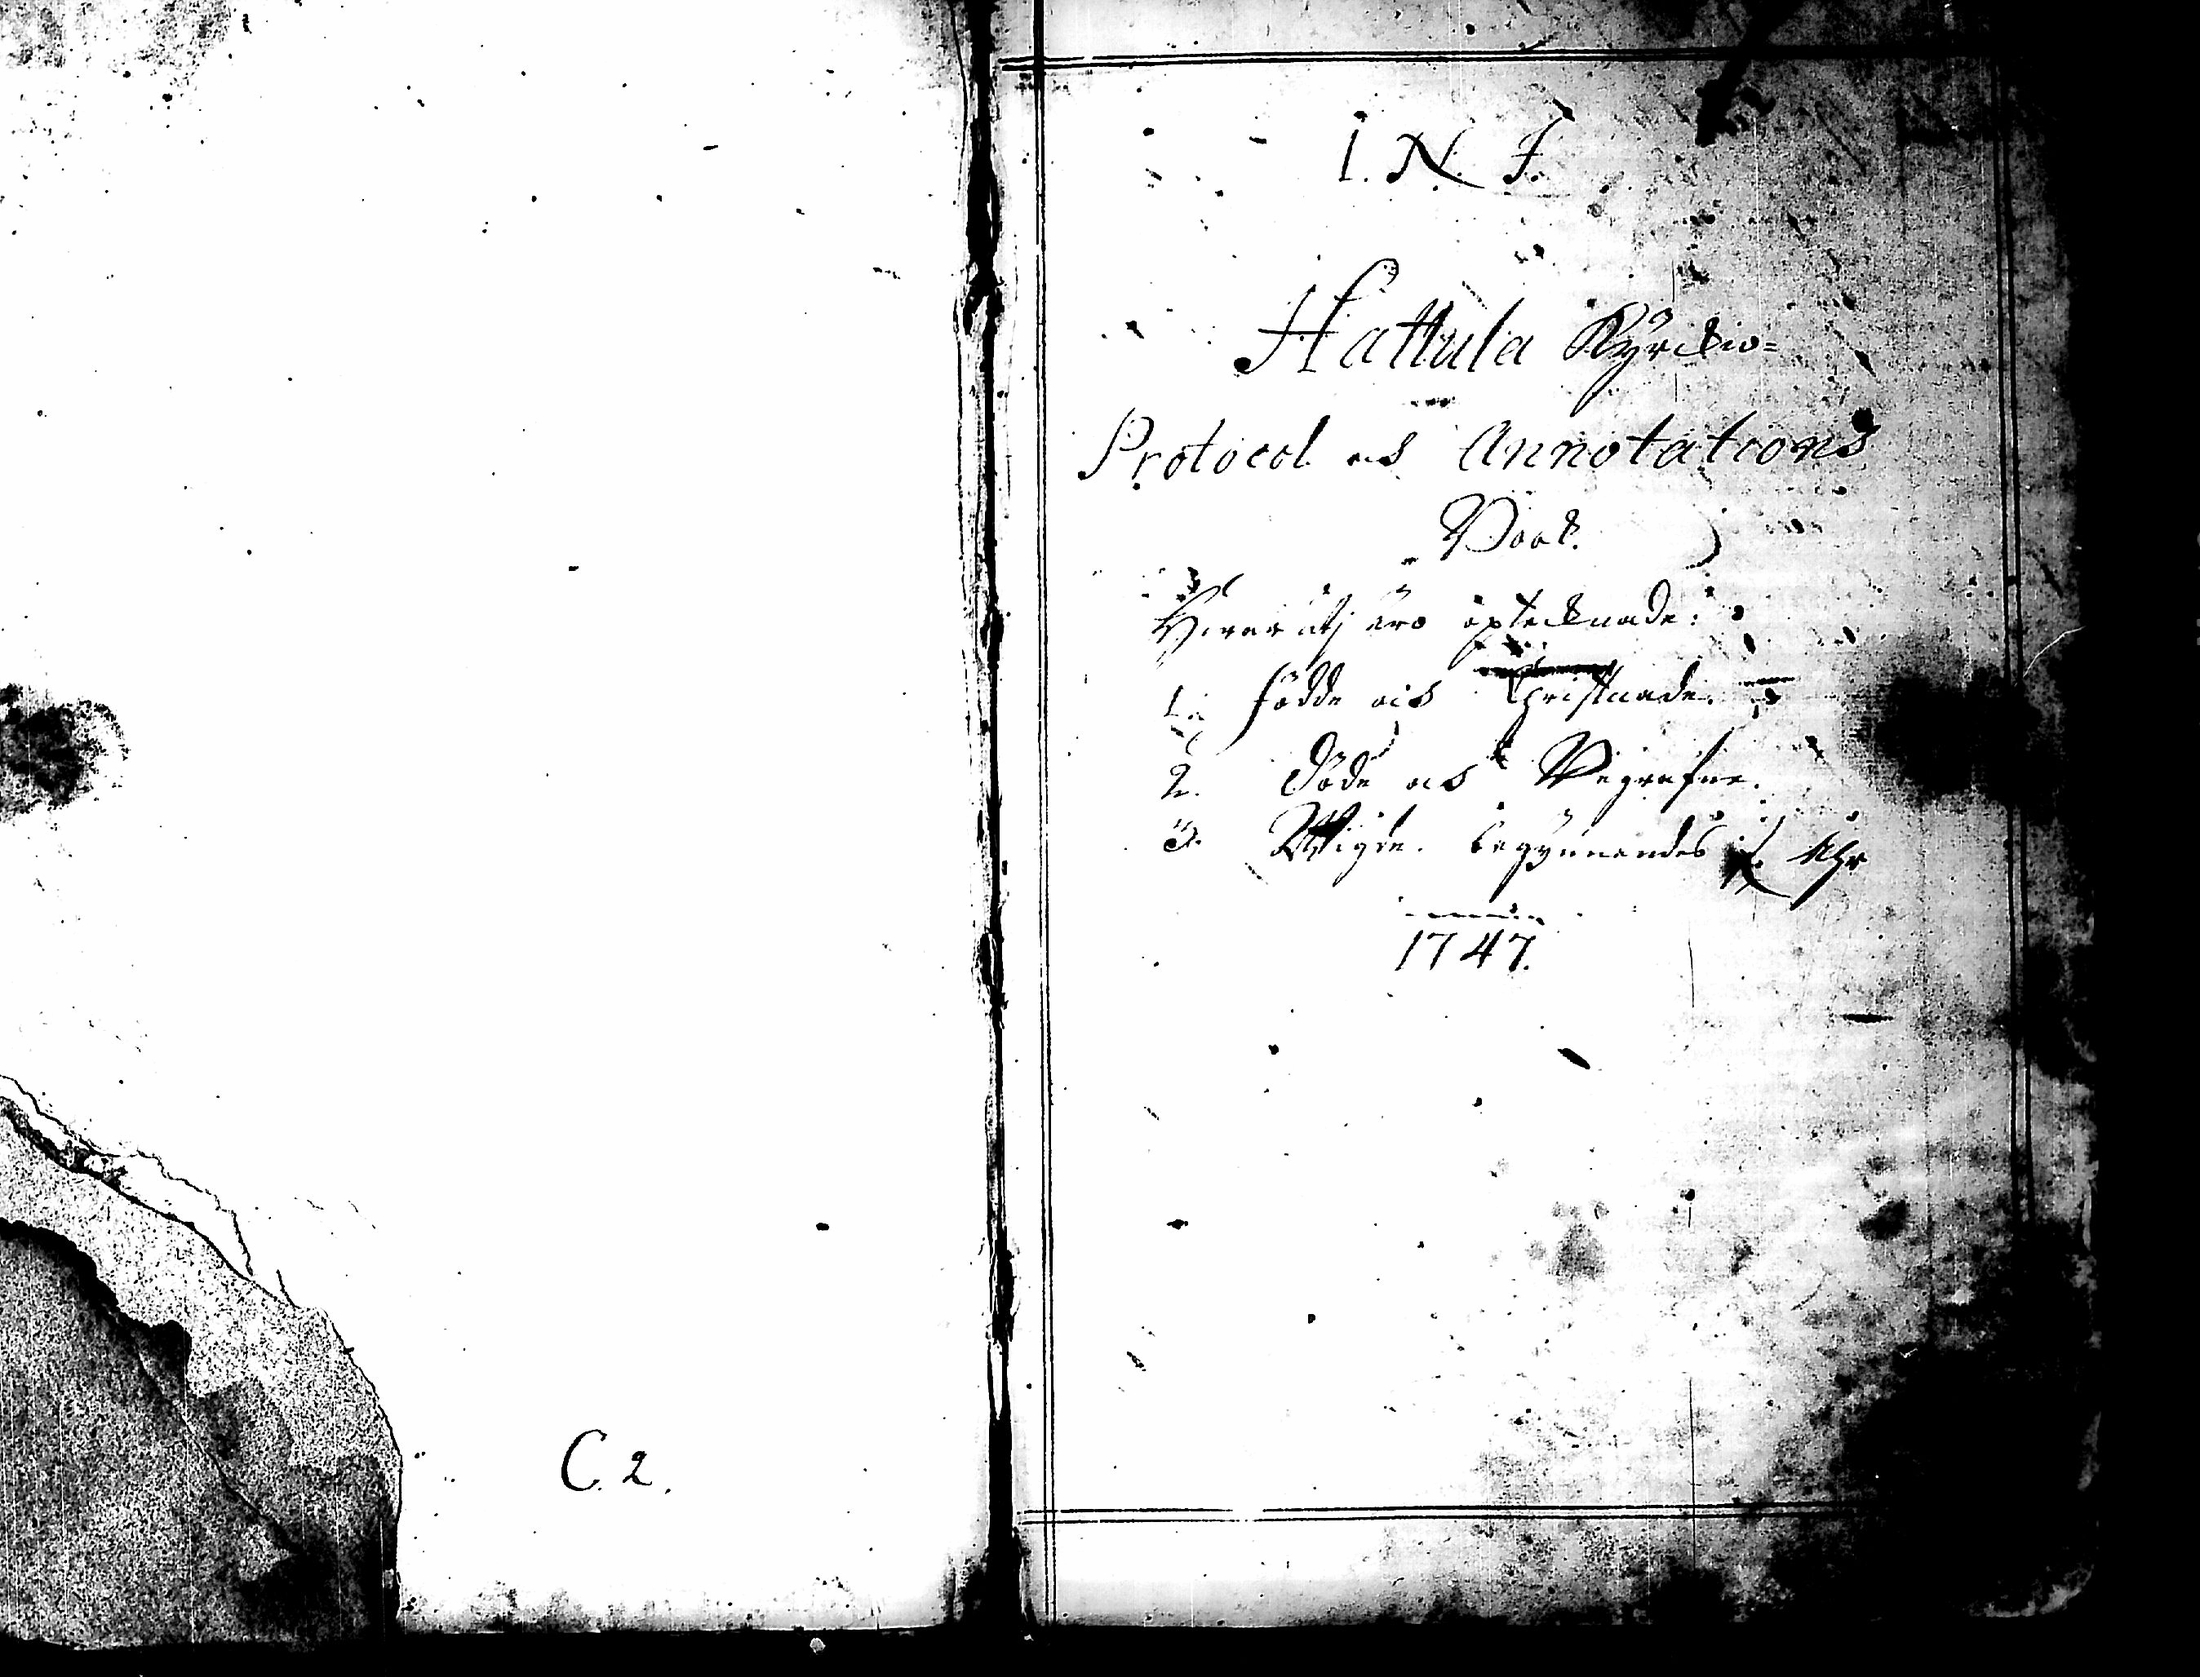 C. 2.
I. N. J.
Hattula Kyrckio-
Protocol och Annotations
Book.
Hvaruti äro optecknade:
1. födde och Christnade.
2. Döde och Begrafne.
3. Wigde. begynnandes Åhr
1747.